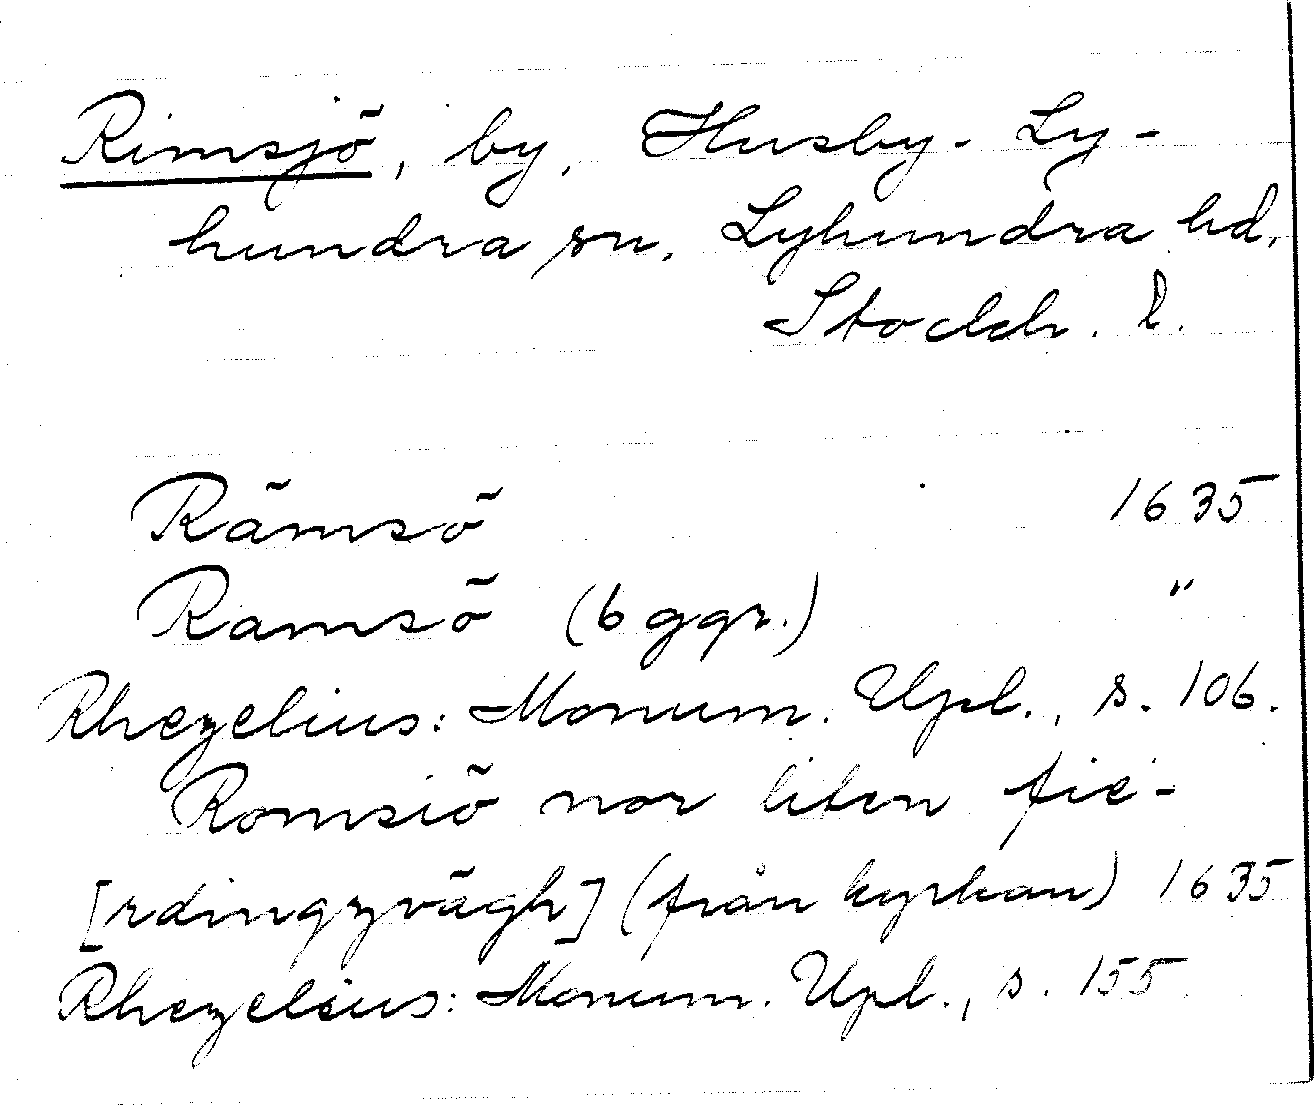 Rimsjö, by, Husby-Ly-
hundra sn, Lyhundra hd,
Stockh. l.
Rämsö 1635
Ramsö (6 ggr.) "
Rhezelius: Monum. Upl., s. 106.
Romsiö nor liten fie-
[rdingzvägh] (från kyrkan) 1635
Rhezelius: Monum. Upl., s. 155